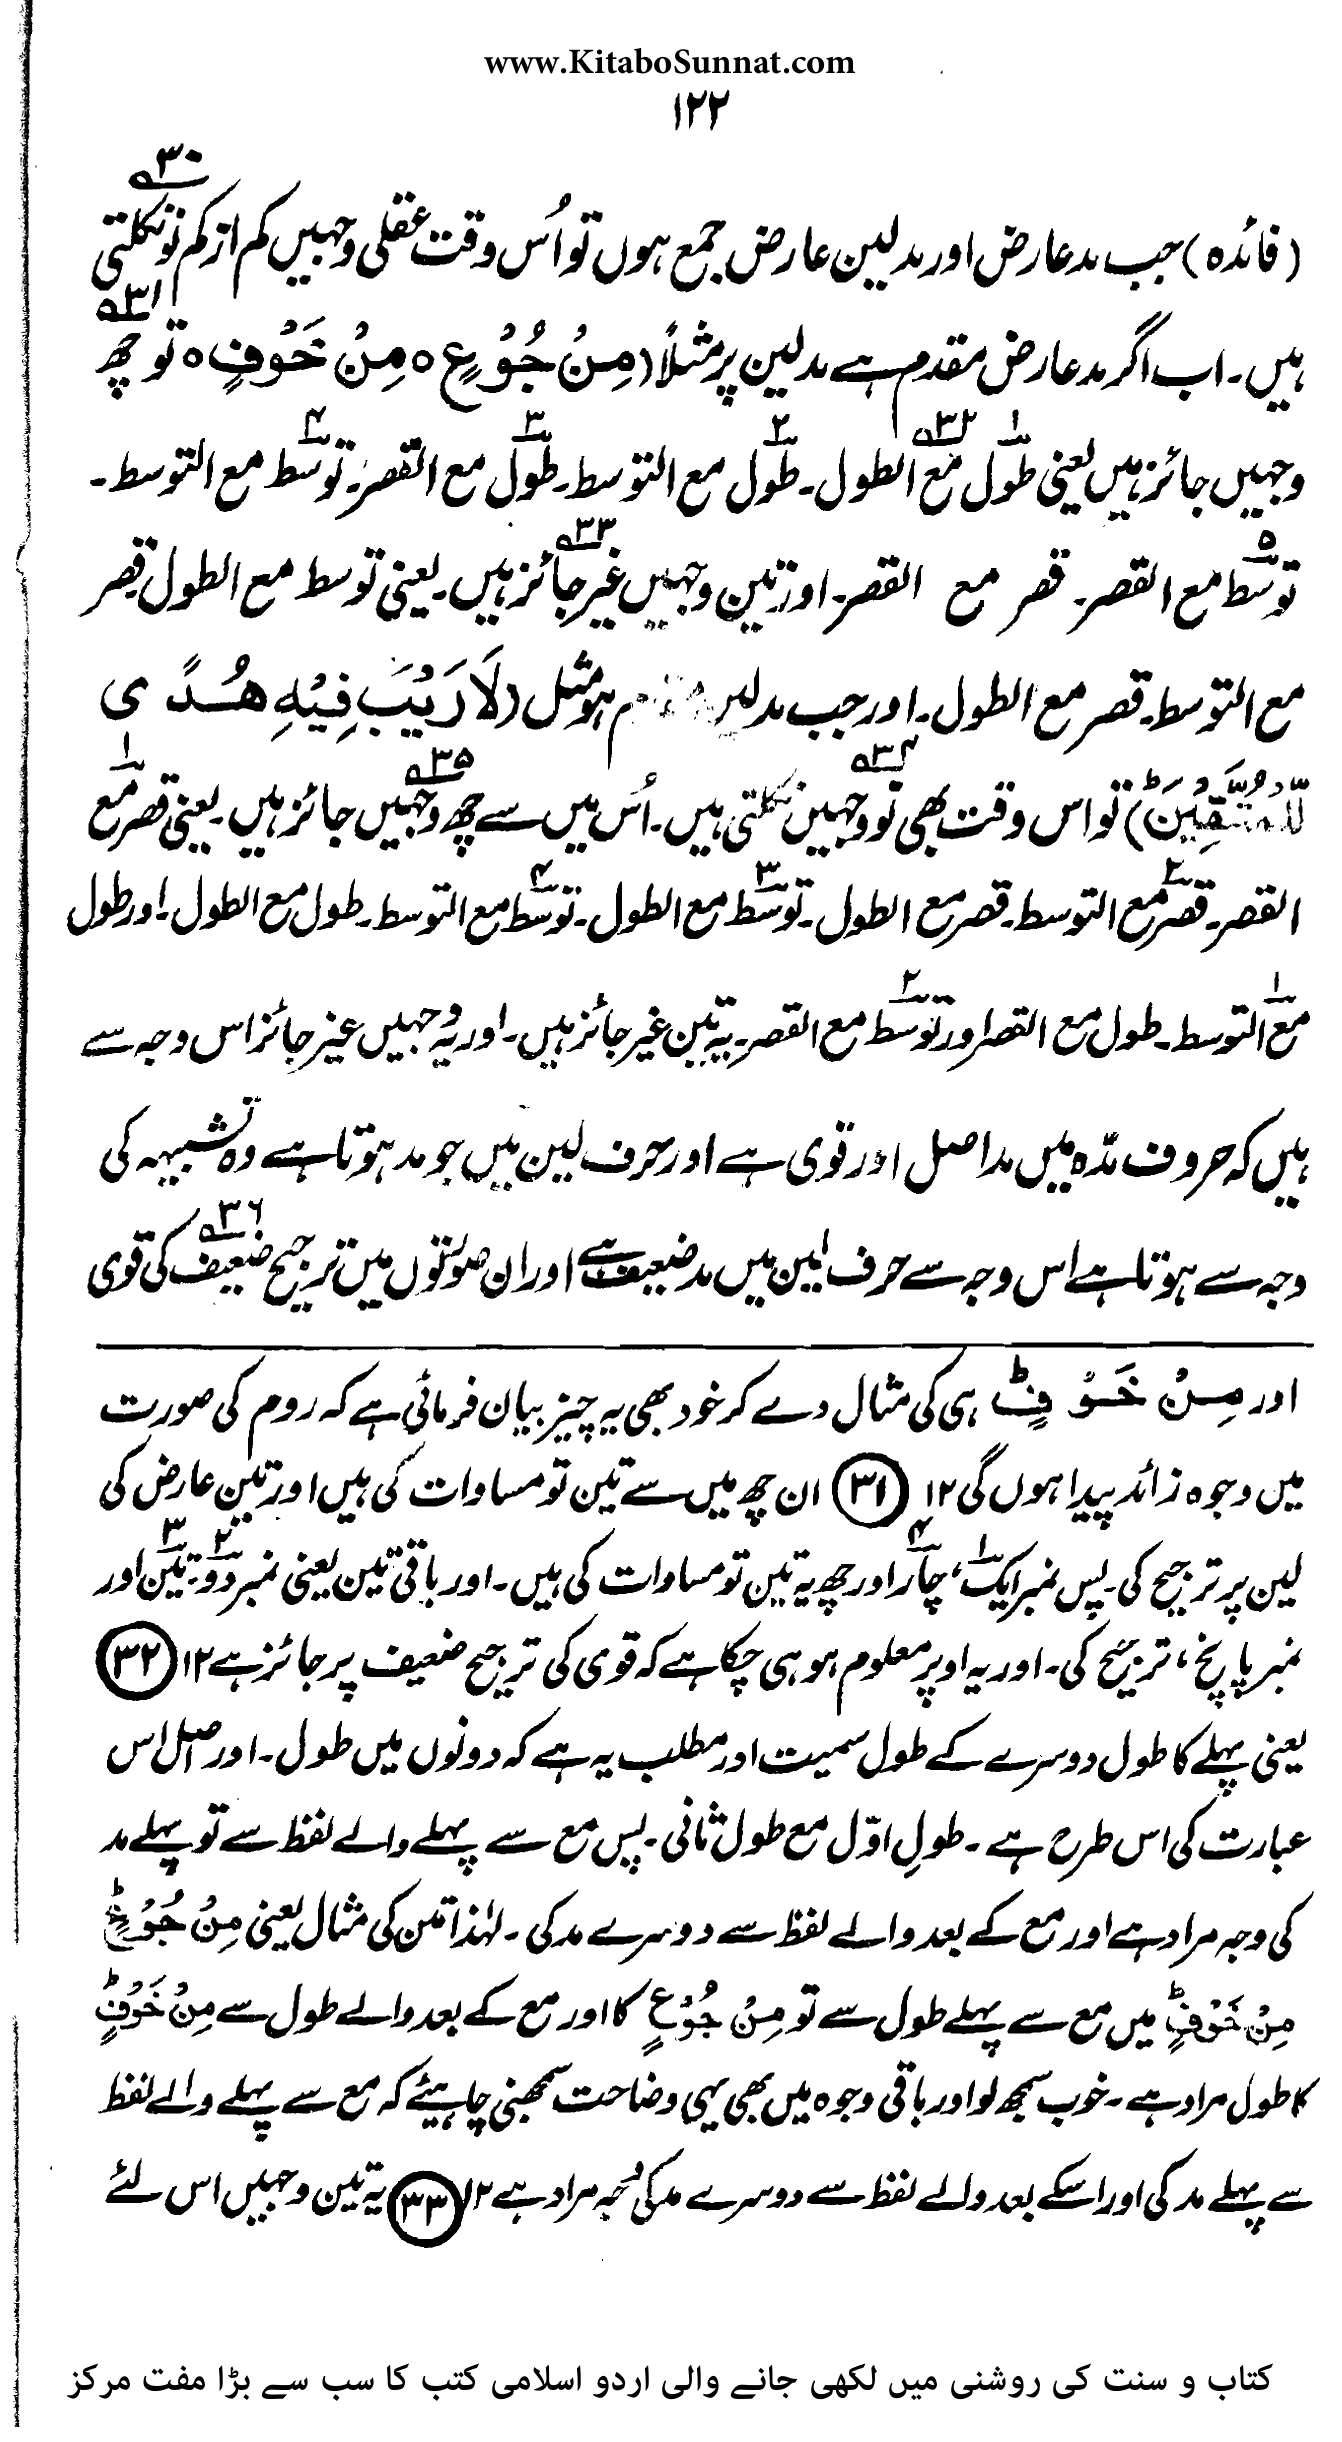 www.KitaboSunnat.com
۱۲۲
(فائدہ) جب مد عارض اور مد لین عارض جمع ہوں تو اُس وقت عقلی وجہیں کم از کم نو۳۰ نکلتی
ہیں۔ اب اگر مد عارض مقدم ہے مد لین پر مثلاً (مِنْ جُوْعٍ ہ مِنْ خَوْفٍ ہ تو چھ۳۱
وجہیں جائز ہیں یعنی طول۱ مع۳۲ الطول۔ طول۲ مع التوسط۔ طول۳ مع القصر۔ توسط۴ مع التوسط۔
توسط۵ مع القصر۔ قصر مع القصر۔ اور تین وجہیں غیر جائز۳۳ ہیں۔ یعنی توسط مع الطول قصر
مع التوسط۔ قصر مع الطول۔ اور جب مد لین ہو مثل (لَا رَيْبَ فِيْهِ هُدًى
لِّلْمُتَّقِيْنَ ط) تو اس وقت بھی نو۳۴ وجہیں نکلتی ہیں۔ اُس میں سے چھ وجہیں۳۵ جائز ہیں۔ یعنی قصر مع۱
القصر۔ قصر۲ مع التوسط۔ قصر مع الطول۔ توسط۳ مع الطول۔ توسط۴ مع التوسط۔ طول مع الطول۔ اور طول
مع۱ التوسط۔ طول مع القصر اور توسط۲ مع القصر۔ یہ تین غیر جائز ہیں۔ اور یہ وجہیں غیر جائز اس وجہ سے
ہیں کہ حروف مدّہ میں مد اصل اور قوی ہے اور حرف لین میں جو مد ہوتا ہے وہ تشبیہہ کی
وجہ سے ہوتا ہے اس وجہ سے حرف لین میں مد ضعیف ہے اور ان صورتوں میں ترجیح ضعیف۳۶ کی قوی
اور مِنْ خَوْفٍ ط ہی کی مثال دے کر خود بھی یہ چیز بیان فرمائی ہے کہ روم کی صورت
میں وجوہ زائد پیدا ہوں گی ۱۲ (۳۱) ان چھ میں سے تین تو مساوات کی ہیں اور تین عارض کی
لین پر ترجیح کی۔ پس نمبر ایک۱، چار۴ اور چھ یہ تین تو مساوات کی ہیں۔ اور باقی تین یعنی نمبر دو۲۔ تین۳ اور
نمبر پانچ، ترجیح کی۔ اور یہ اوپر معلوم ہو ہی چکا ہے کہ قوی کی ترجیح ضعیف پر جائز ہے ۱۲ (۳۲)
یعنی پہلے کا طول دوسرے کے طول سمیت اور مطلب یہ ہے کہ دونوں میں طول۔ اور اصل اس
عبارت کی اس طرح ہے۔ طولِ اوّل مع طول ثانی۔ پس مع سے پہلے والے لفظ سے تو پہلے مد
کی وجہ مراد ہے اور مع کے بعد والے لفظ سے دوسرے مد کی۔ لہٰذا متن کی مثال یعنی مِنْ جُوْعٍ ط
مِنْ خَوْفٍ ط میں مع سے پہلے طول سے تو مِنْ جُوْعٍ کا اور مع کے بعد والے طول سے مِنْ خَوْفٍ ط
کا طول مراد ہے۔ خوب سمجھ لو اور باقی وجوہ میں بھی یہی وضاحت سمجھنی چاہیئے کہ مع سے پہلے والے لفظ
سے پہلے مد کی اور اسکے بعد والے لفظ سے دوسرے مد کی وجہ مراد ہے ۱۲ (۳۳) یہ تین وجہیں اس لئے
کتاب و سنت کی روشنی میں لکھی جانے والی اردو اسلامی کتب کا سب سے بڑا مفت مرکز